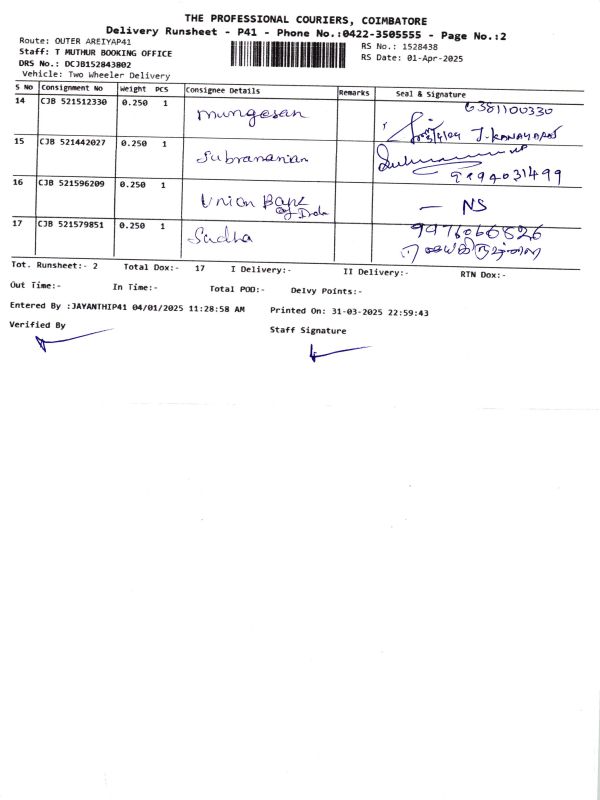 THE PROFESSIONAL COURIERS, COIMBATORE
Delivery Runsheet - P41 - Phone No.:0422-3505555 - Page No.:2
Route: OUTER AREIYAP41
RS No.: 1528438
Staff: T MUTHUR BOOKING OFFICE
RS Date: 01-Apr-2025
DRS No.: DCJB152843802
Vehicle: Two Wheeler Delivery
S No Consignment No Weight PCS Consignee Details Remarks Seal & Signature
14 CJB 521512330 0.250 1 Murugesan 6381100330
J. KANAYARAJ
15 CJB 521442027 0.250 1 Subramanian
9994031499
16 CJB 521596209 0.250 1 Union Bank
of India
— NS
17 CJB 521579851 0.250 1 Sudha 9976066826
Tot. Runsheet:- 2 Total Dox:- 17 I Delivery:- II Delivery:- RTN Dox:-
Out Time:- In Time:- Total POD:- Delvy Points:-
Entered By :JAYANTHIP41 04/01/2025 11:28:58 AM Printed On: 31-03-2025 22:59:43
Verified By
Staff Signature